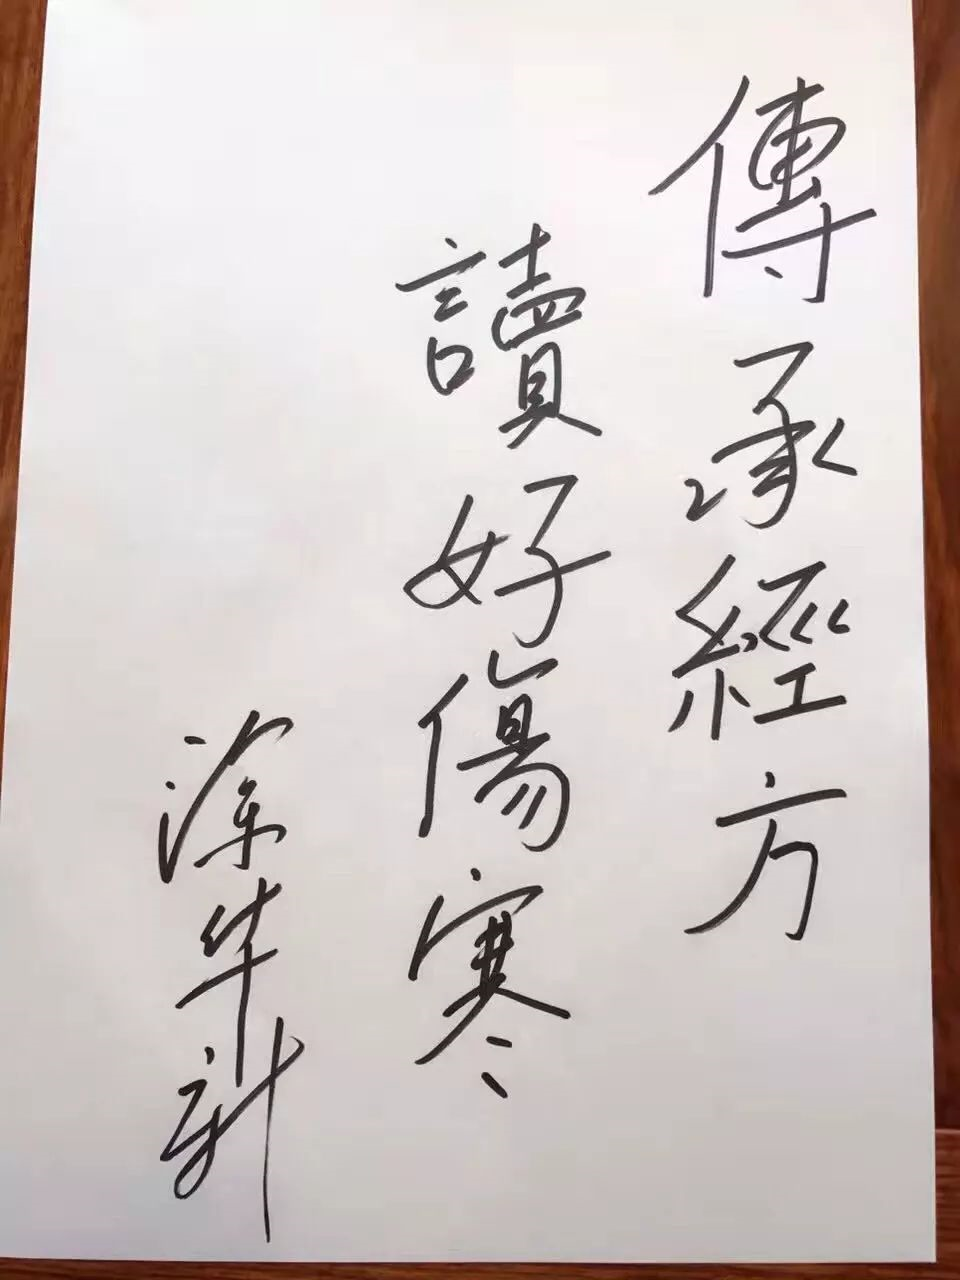 傳承經方
讀好傷寒
涂华新